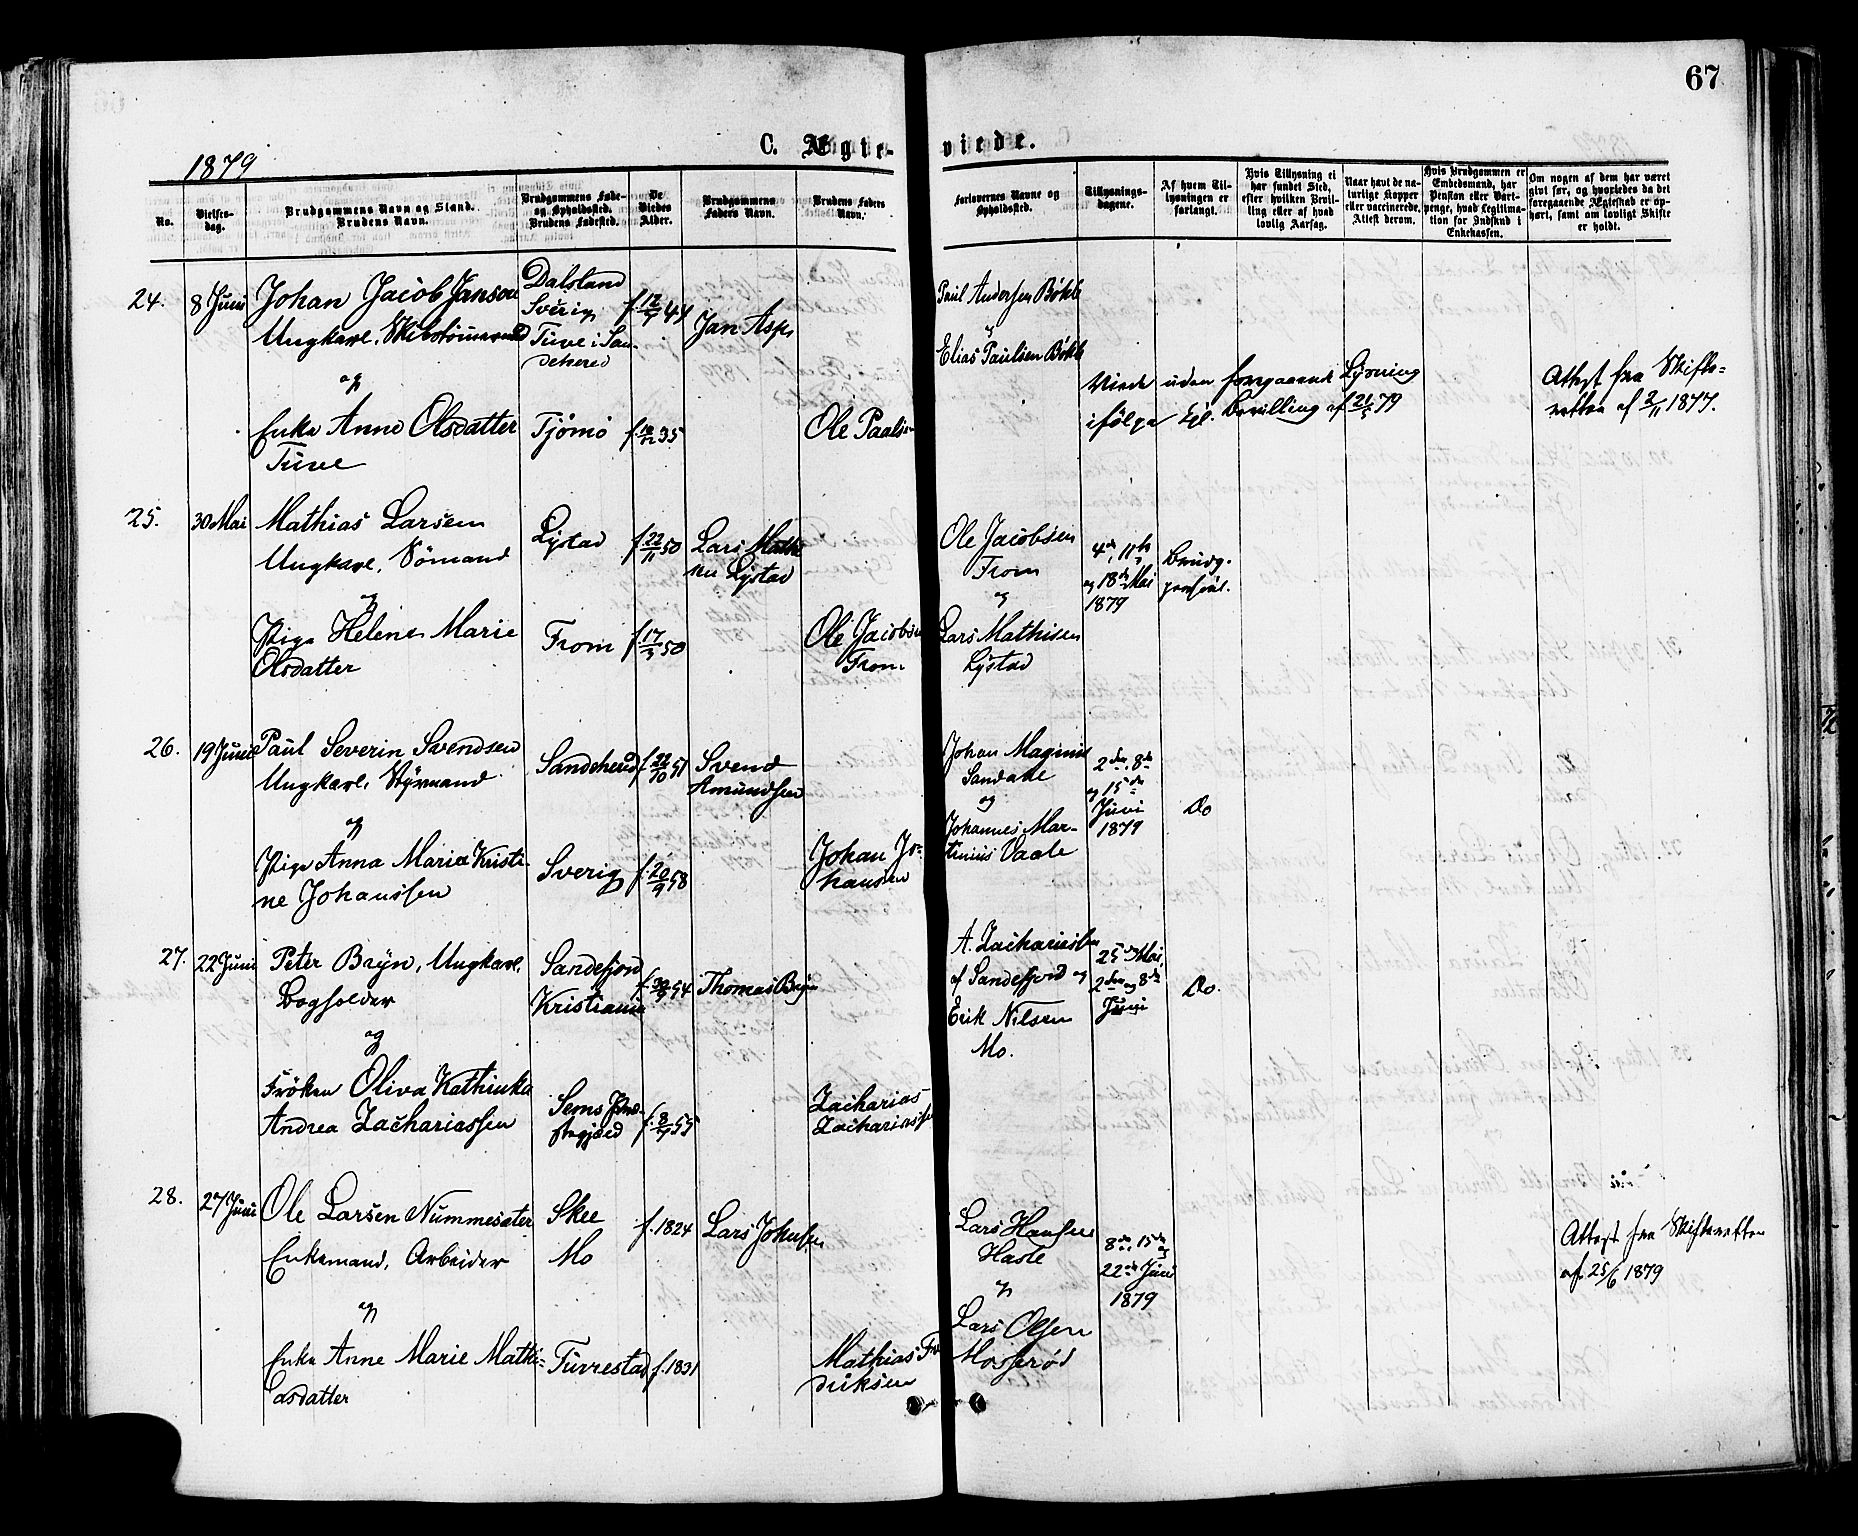 67
C. Ægte-
viede.
1879
No.
Vielses-
dag.
Brudgommens Navn og Stand.
Brudens Navn.
Brudgommens Føde-
og Opholdssted.
Brudens Fødested.
De
Viedes
Alder.
Brudgommens
Faders Navn.
Brudens Faders
Navn.
Forlovernes Navne og
Opholdssted.
Tillysnings-
dagene.
Af hvem Til-
lysningen er
forlangt.
Hvis Tillysning ei
har fundet Sted,
efter hvilken Bevil-
ling eller af hvad
lovlig Aarsag.
Naar havt de na-
turlige Kopper
eller vaccinerede.
Attest derom.
Hvis Brudgommen er
Embedsmand, har
Pension eller Vart-
penge, hvad Legitima-
tion for Indskud i
Enkekassen.
Om nogen af dem har været
givt før, og hvorledes da det
foregaaende Ægteskab er op-
hørt, samt om lovligt Skifte
er holdt.
24.
8 Juni
Johan Jacob Janson
Ungkarl,
og
Enke Anne Olsdatter
Tuve
Dalsland
Sverig
Tuve i San-
deherred
Tjømø
f. 44
f. 35
Jan Asp
Ole Paalsen
Paul Andersen
Elias Paulsen
Viede uden foregaaende Lysning
ifølge Kgl. Bevilling af 21/5 79
Attest fra Skifte-
retten af 2/11 1877.
25.
30 Mai
Mathias Larsen
Ungkarl, Sømand
og
Pige Helene Marie
Olsdatter
Lystad
From
f. 22/11 50
f. 17/3 50
Lars Mathi
sen Lystad
Ole Jacobsen
From
Ole Jacobsen
From
og
Lars Mathisen
Lystad
4de, 11te
og 18de Mai
1879
Brudg.
personl.
26.
19 Juni
Paul Severin Svendsen
Ungkarl, Styrmand
og
Pige Anna Maria Kristi-
ne Johanssen
Sandeherred
Sverig
f. 22/10 51
f. 20/9 58
Svend
Amundsen
Johan Jo-
hansen
Johan Magnus
og
Johannes Mar-
tinius Vaale
2den, 8de
og 15de
Juni
1879
Do
27.
22 Juni
Peter Bryn, Ungkarl,
Bogholder
og
Frøken Oliva Kathinka
Andrea Zachariassen
Sandefjord
Kristiania
Sems
f. 54
f. 8/9 55
Thomas Bryn
Zacharias
Zachariassen
A. Zachariassen
af Sandefjord og
Erik Nilsen
Mo.
25de Mai,
2den og 8de
Juni
Do.
28.
27 Juni
Ole Larsen Nummesæter
Enkemand, Arbeider
og
Enke Anne Marie Mathi-
asdatter
Skee
Mo
Tuvrestad
f. 1824
f. 1831
Lars Johnsen
Mathias Fre
driksen
Lars Hansen
Hasle
og
Lars Olsen
Mosserød
8de, 15de og
22de Juni
1879
Attest fra Skifteretten
af 25/6 1879